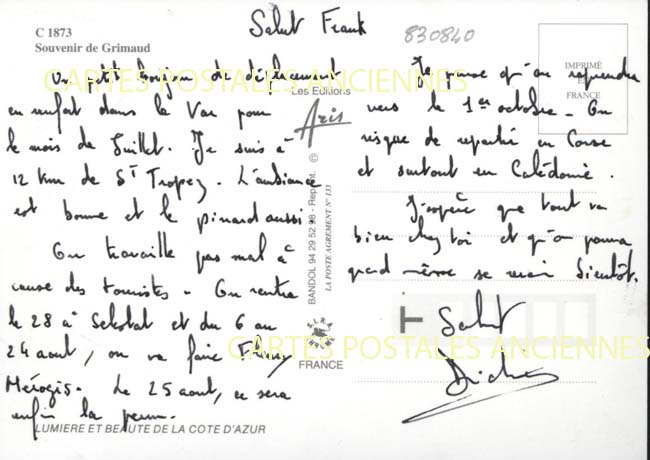 C 1873
Souvenir de Grimaud
Salut Frank
830840
Un petit bonjour de déplacement
en renfort dans le Var pour
le mois de Juillet. Je suis à
12 km de St Tropez. L'ambiance
est bonne et le pinard aussi.
On travaille pas mal à
cause des touristes - On rentre
le 28 à Sélestat et du 6 au
24 aout, on va faire Fleury
Mérogis. Le 25 aout, ce sera
enfin la perm.
LUMIERE ET BEAUTE DE LA COTE D'AZUR
Les Editions
Aris
BANDOL 94 29 52 98 - Reprod. int. ©
LA POSTE AGREMENT N° 133
FRANCE
IMPRIMÉ
EN
FRANCE
Je pense qu'on reprendra
vers le 1er octobre - On
risque de repartir en Corse
et surtout en Calédonie.
J'espère que tout va
bien chez toi et qu'on pourra
quand même se revoir bientôt.
Salut
CARTES POSTALES ANCIENNES
CARTES POSTALES ANCIENNES